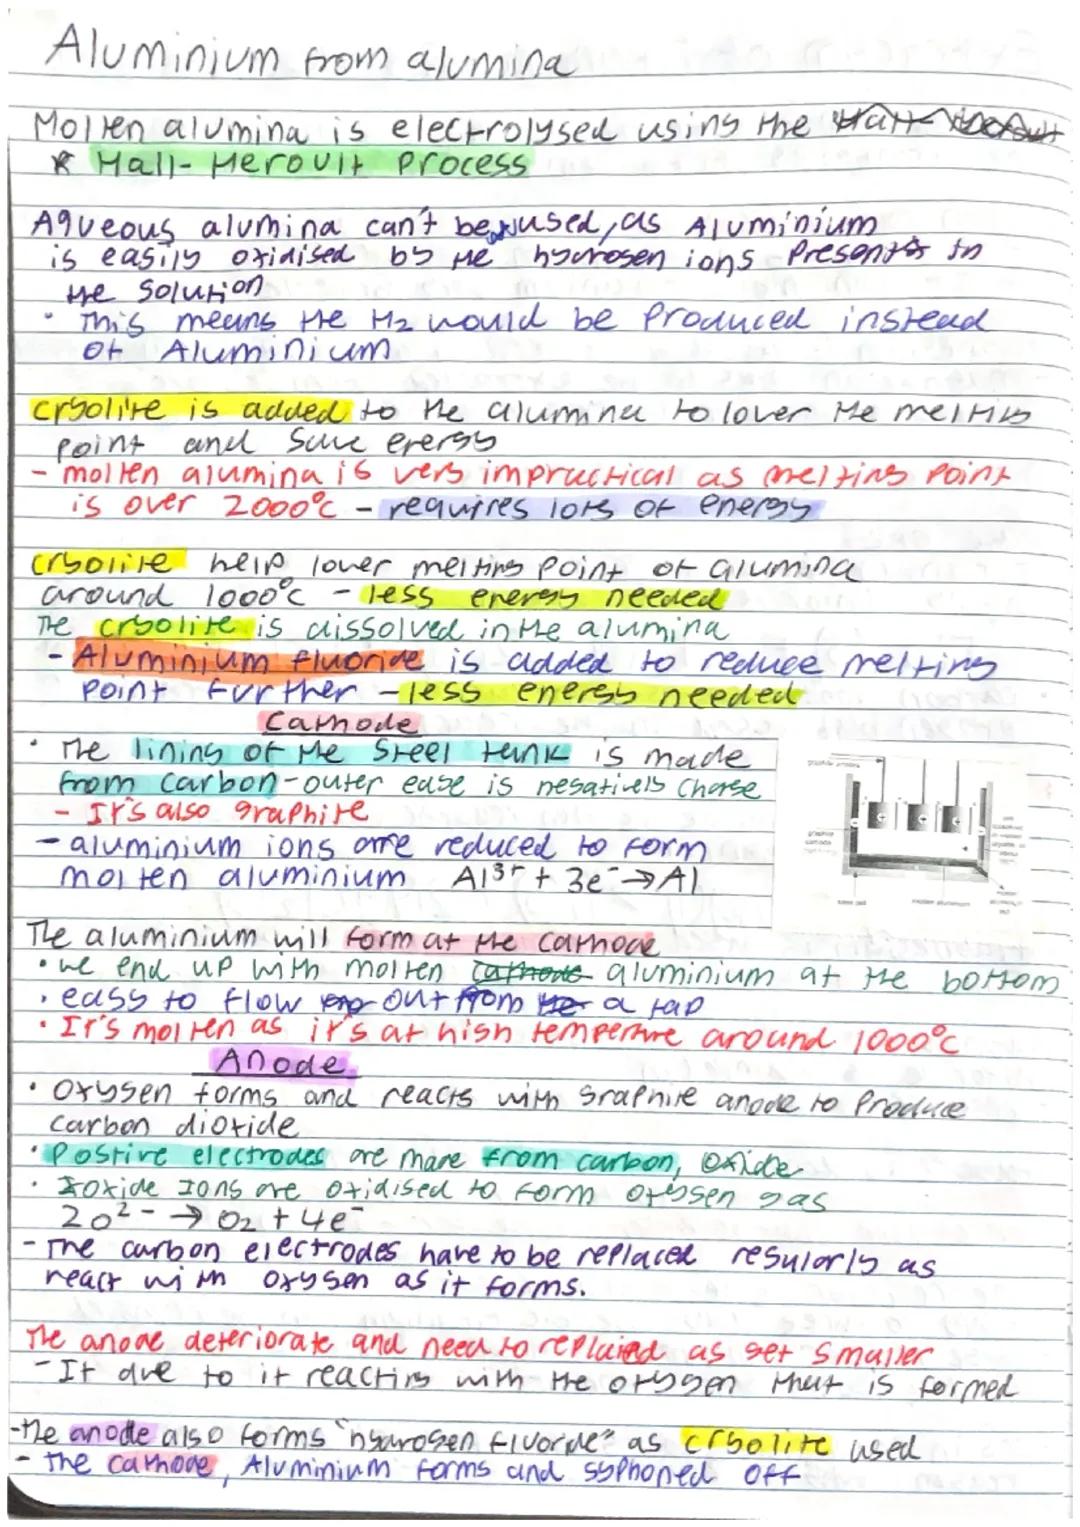 Aluminium from alumina
Molten alumina is electrolysed using the
* Hall-Heroult Process
Aqueous alumina can't be used, as Aluminium
is easily oxidised by the hydrogen ions Present in
the Solution
• This means the H2 would be Produced instead
of Aluminium
cryolite is added to the alumina to lower the melting
point and save energy
- molten alumina is very impractical as melting Point
is over 2000°C - requires lots of energy
cryolite help lower melting point of alumina
around 1000°C - less energy needed
The cryolite is dissolved in the alumina
- Aluminium fluoride is added to reduce melting
point further - less energy needed
Cathode
• The lining of the Steel tank is made
from carbon - outer case is negatively charge
- It's also graphite
- aluminium ions are reduced to form
molten aluminium Al3+ + 3e- → Al
The aluminium will form at the cathode
• we end up with molten cathode aluminium at the bottom
• easy to flow out from a tap
• It's molten as it's at high temperture around 1000°C
Anode
• Oxygen forms and reacts with graphite anode to Produce
carbon dioxide
• Postive electrodes are made from carbon, oxide
• oxide Ions are oxidised to form oxygen gas
2O2- → O2 + 4e-
- The carbon electrodes have to be replaced regularly as
react with oxygen as it forms.
The anode deteriorate and need to replaced as get smaller
- It due to it reacting with the oxygen that is formed
- the anode also forms "hydrogen fluorde" as cryolite used
- the cathode, Aluminium forms and syphoned off
graphite anodes
graphite cathode
steel tank
molten aluminium